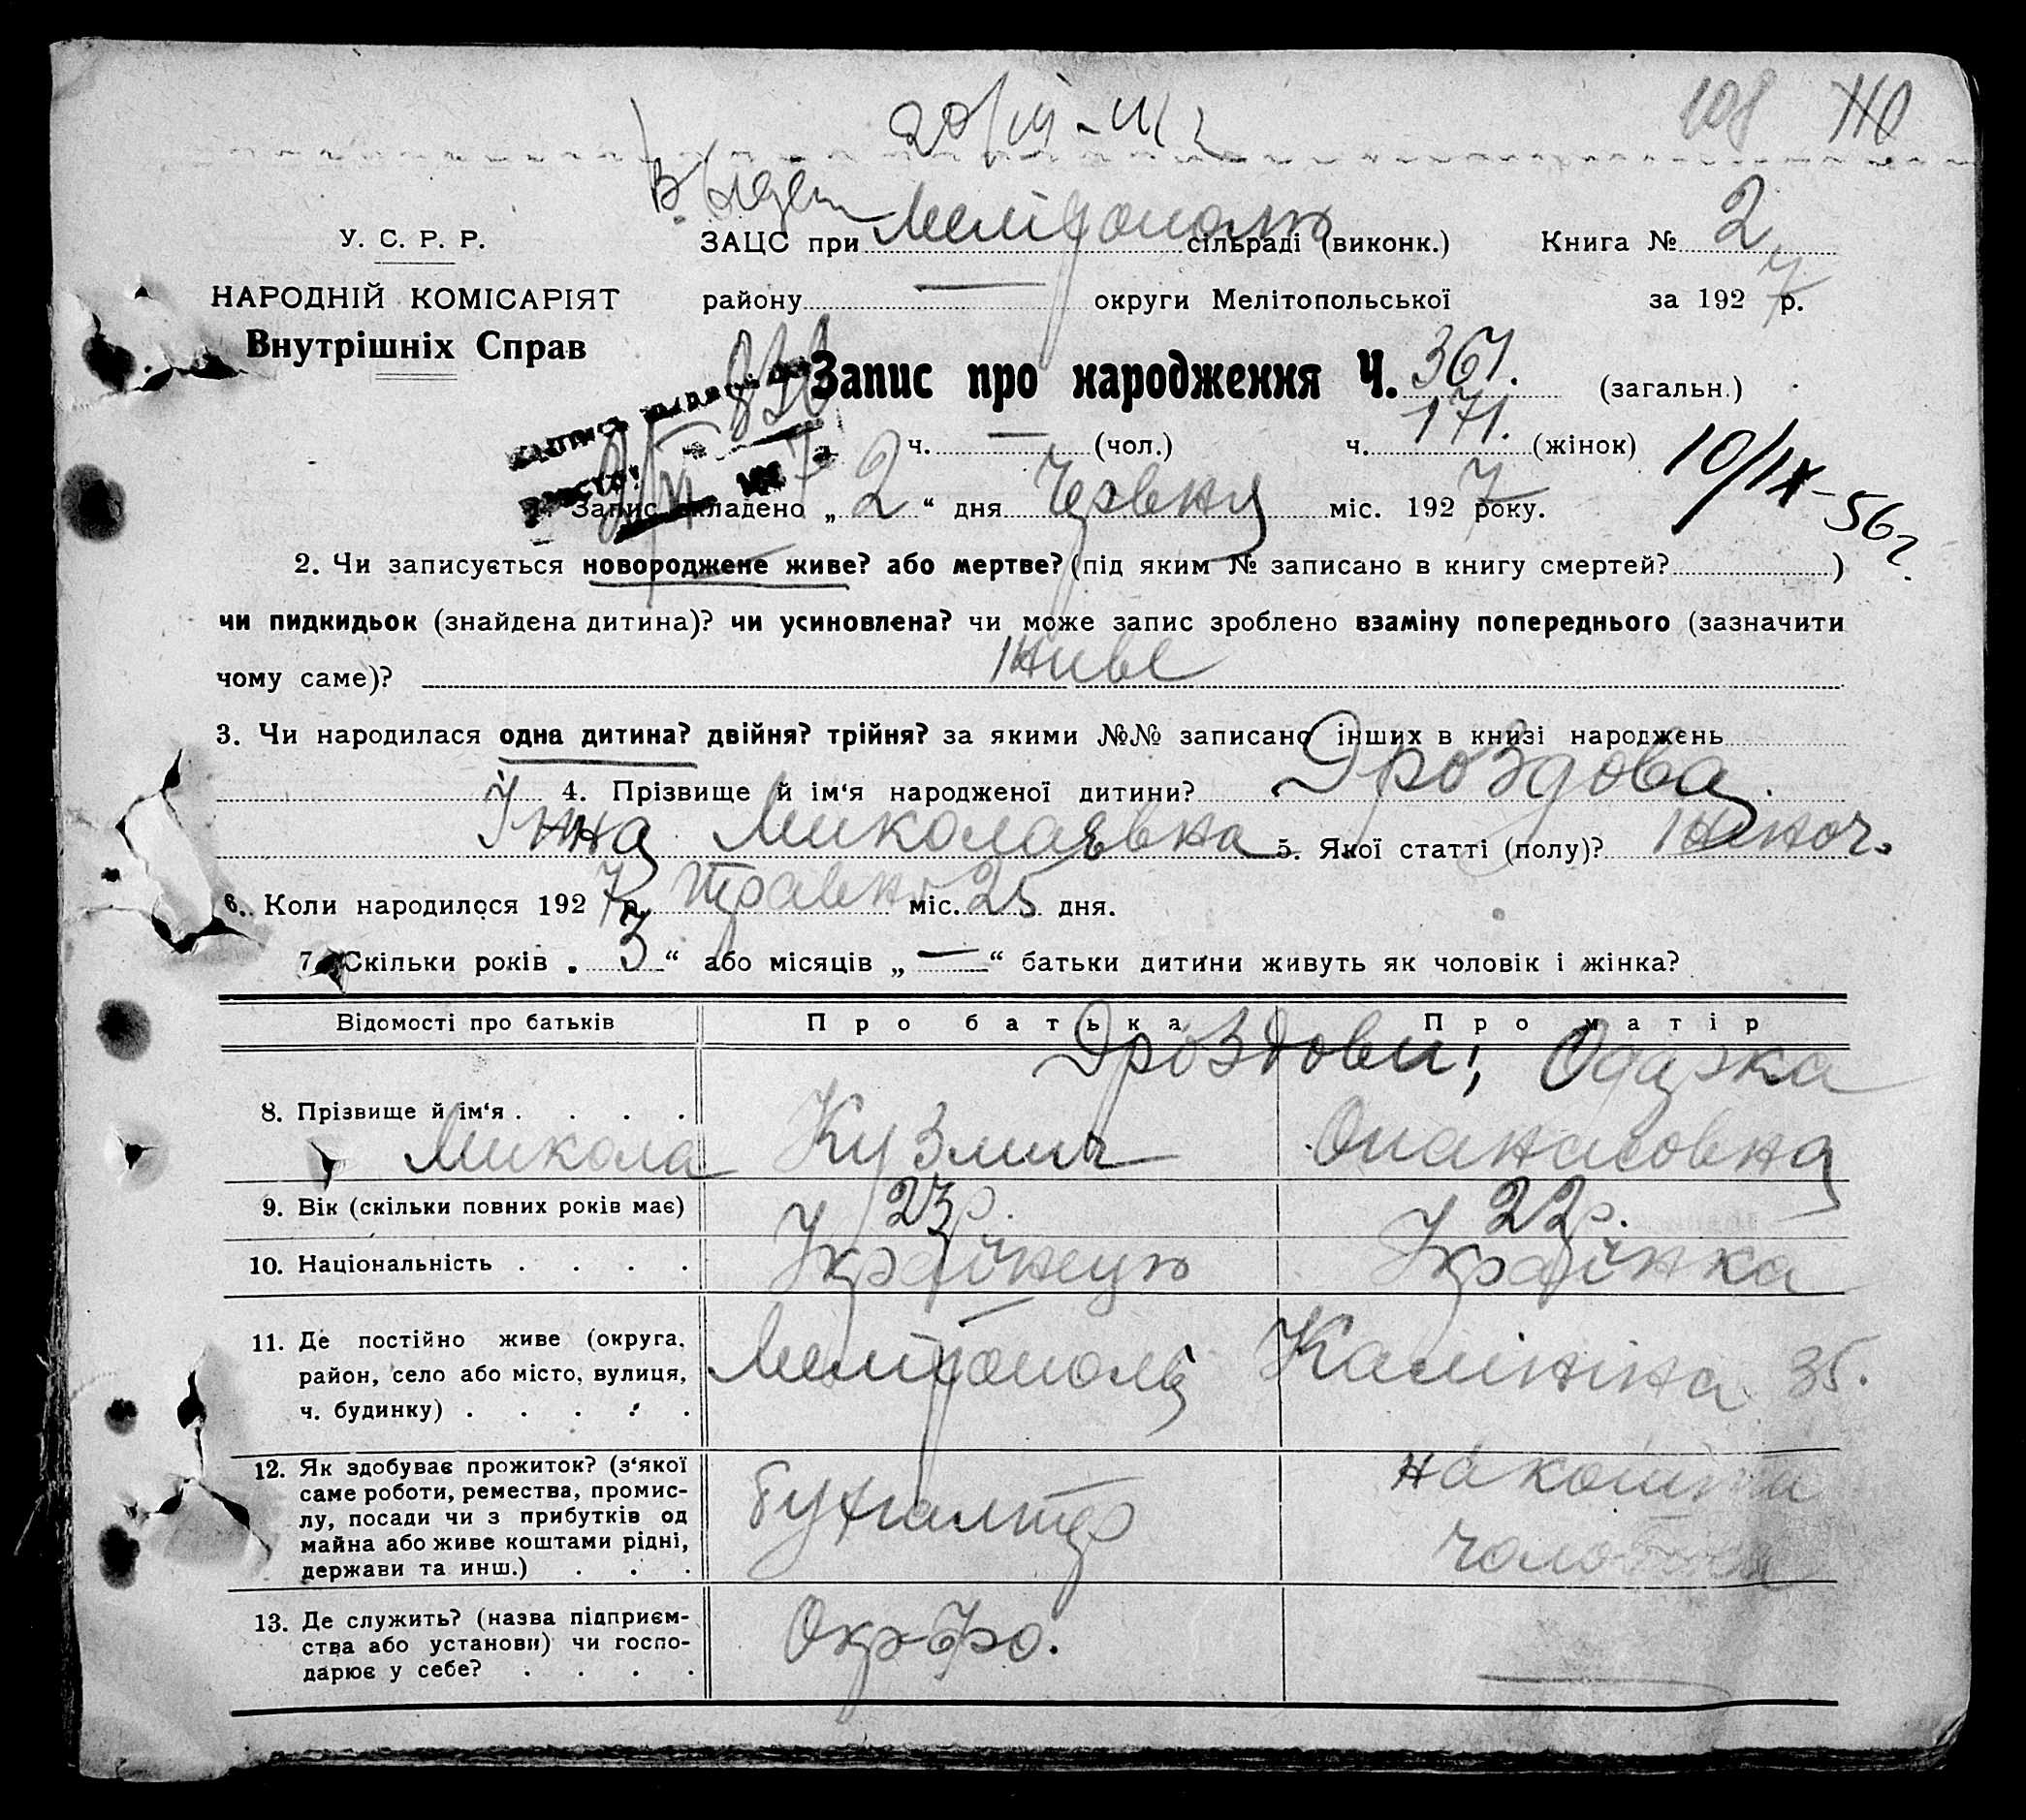 108 110
У. С. Р. Р.
ЗАЦС при Мелітополь сільраді (виконк.) Книга № 2
НАРОДНІЙ КОМІСАРІЯТ
району — округи Мелітопольської за 1927 р.
Внутрішніх Справ
Запис про народження Ч. 367. (загальн.)
ч. — (чол.) ч. 171. (жінок)
10/IX-56г.
1. Запис складено „ 2 “ дня Червня міс. 1927 року.
2. Чи записується новороджене живе? або мертве? (під яким № записано в книгу смертей? )
чи пидкидьок (знайдена дитина)? чи усиновлена? чи може запис зроблено взаміну попереднього (зазначити
чому саме)? живе
3. Чи народилася одна дитина? двійня? трійня? за якими №№ записано інших в книзі народжень
4. Прізвище й ім‘я народженої дитини? Дроздова
Інна Миколаєвна 5. Якої статті (полу)? жіноч.
6. Коли народилося 1927 р. травня міс. 25 дня.
7. Скільки років „ 3 “ або місяців „ — “ батьки дитини живуть як чоловік і жінка?
Відомості про батьків Про батька Про матір
Дроздови; Одарка
8. Прізвище й ім‘я . . . .
Микола Кузмич Опанасовна
9. Вік (скільки повних років має) 23 р. 22 р.
10. Національність . . . . Українець Українка
11. Де постійно живе (округа,
район, село або місто, вулиця,
ч. будинку) . . . . .
Мелітополь Калініна 35.
12. Як здобуває прожиток? (з‘якої
саме роботи, ремества, промис-
лу, посади чи з прибутків од
майна або живе коштами рідні,
держави та инш.) . . .
бухгалтер
на кошти
чоловіка
13. Де служить? (назва підприєм-
ства або установи) чи госпо-
дарює у себе? . . . .
Окрфо. —